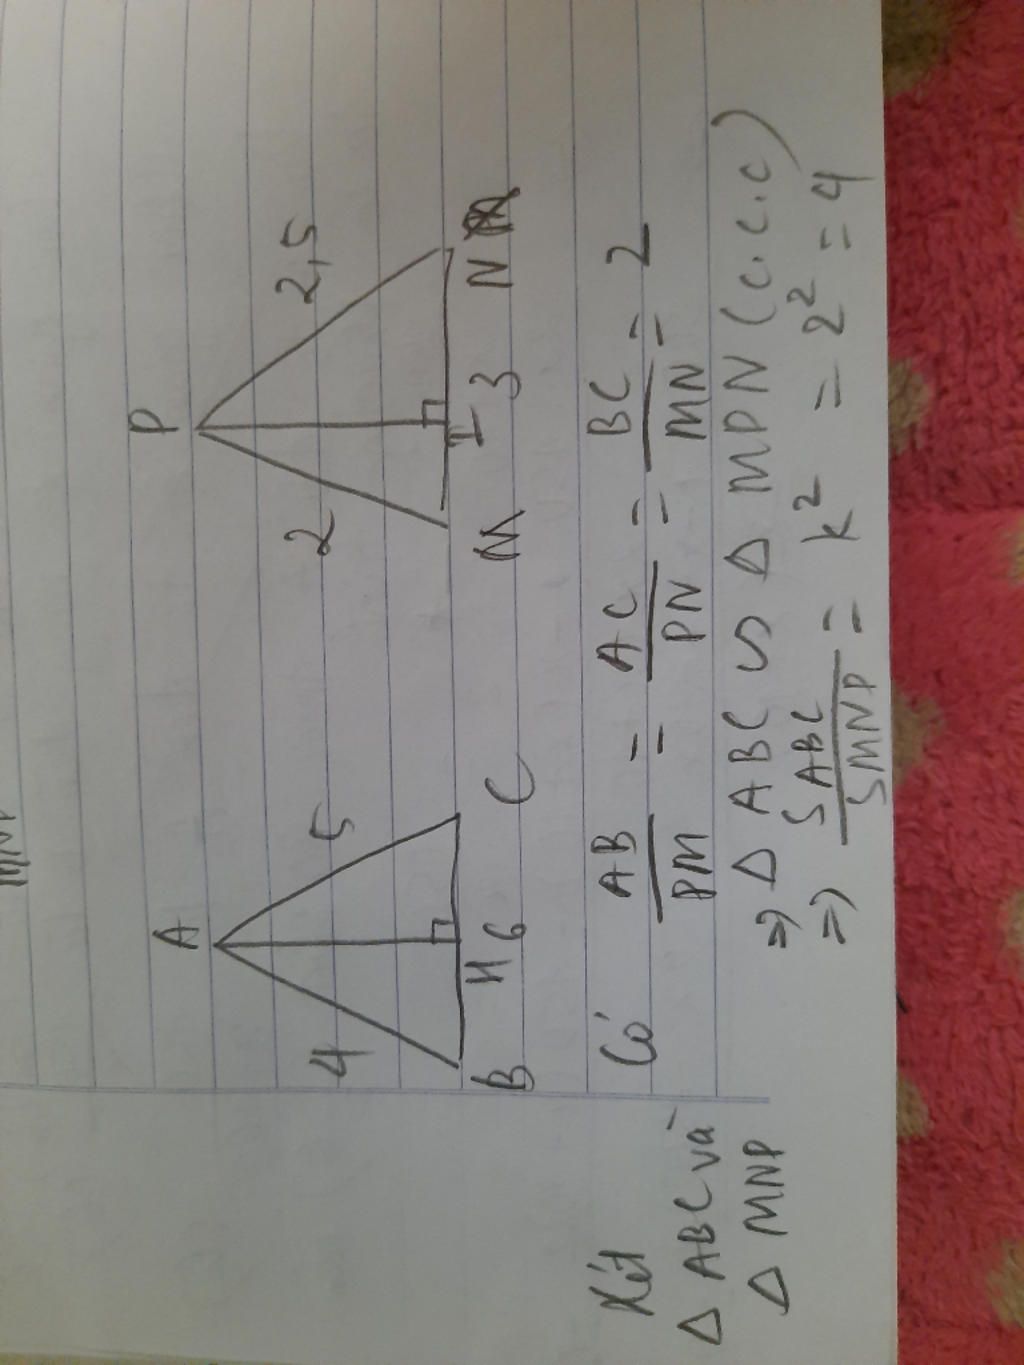 MNP
A
P
4
5
2
2,5
B
H 6
C
M
I 3
N
Xét
△ ABC và
△ MNP
Có AB/PM = AC/PN = BC/MN = 2
=> △ ABC ∽ △ MPN (c.c.c)
=> S ABC / S MNP = k² = 2² = 4